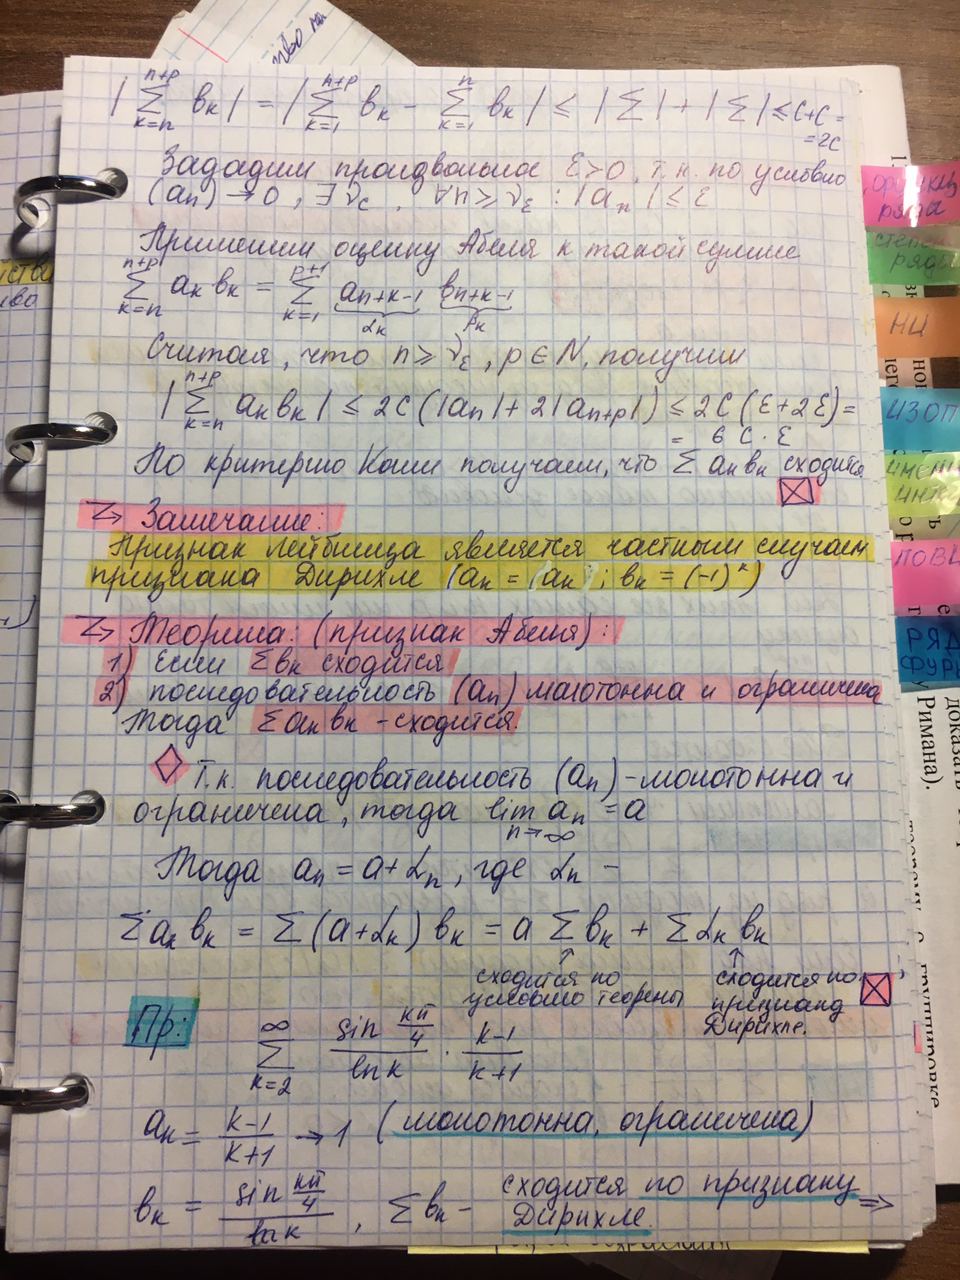 ство ма
|∑_{k=n}^{n+p} bₖ| = |∑_{k=1}^{n+p} bₖ - ∑_{k=1}^{n} bₖ| ≤ |∑| + |∑| ≤ C+C =
= 2C
Зададим произвольное ε>0, т.к. по условию
(aₙ) → 0, ∃ν_ε, ∀n≥ν_ε : |aₙ| ≤ ε
Применим оценку Абеля к такой сумме
∑_{k=n}^{n+p} aₖbₖ = ∑_{k=1}^{p+1} a_{n+k-1} b_{n+k-1}
αₖ βₖ
Считая, что n ≥ ν_ε, p ∈ N, получим
|∑_{k=n}^{n+p} aₖbₖ| ≤ 2C(|aₙ| + 2|a_{n+p}|) ≤ 2C(ε+2ε) =
= 6C·ε
По критерию Коши получаем, что ∑aₖbₖ сходится
Замечание:
Признак Лейбница является частным случаем
признака Дирихле (aₖ = (aₖ) ; bₖ = (-1)^k)
Теорема: (признак Абеля):
1) Если ∑bₖ сходится
2) последовательность (aₙ) монотонна и ограничена
Тогда ∑aₖbₖ - сходится.
Т.к. последовательность (aₙ) - монотонна и
ограничена, тогда lim_{n→∞} aₙ = a
Тогда aₙ = a + αₙ, где αₙ -
∑aₖbₖ = ∑(a+αₖ)bₖ = a∑bₖ + ∑αₖbₖ
↑ ↑
сходится по сходится по
условию теоремы признаку
Дирихле.
Пр:
∑_{k=2}^{∞} (sin kπ/4)/(ln k) · (k-1)/(k+1)
aₖ = (k-1)/(k+1) → 1 (монотонна, ограничена)
bₖ = (sin kπ/4)/(ln k), ∑bₖ - сходится по признаку ⇒
Дирихле.
ряды
степен
ряды
НИ
ИЗОП
ПОВ
РЯД
ФУРЬ
доказать
Римана).
группировке